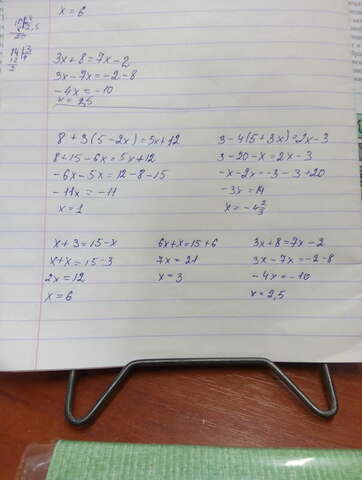 x = 6
3x + 8 = 7x - 2
3x - 7x = -2 - 8
-4x = -10
x = 2,5
8 + 3(5 - 2x) = 5x + 12
8 + 15 - 6x = 5x + 12
-6x - 5x = 12 - 8 - 15
-11x = -11
x = 1
3 - 4(5 + 3x) = 2x - 3
3 - 20 - x = 2x - 3
-x - 2x = -3 - 3 + 20
-3x = 14
x = -4 2/3
x + 3 = 15 - x
x + x = 15 - 3
2x = 12
x = 6
6x + x = 15 + 6
7x = 21
x = 3
3x + 8 = 7x - 2
3x - 7x = -2 - 8
-4x = -10
x = 2,5